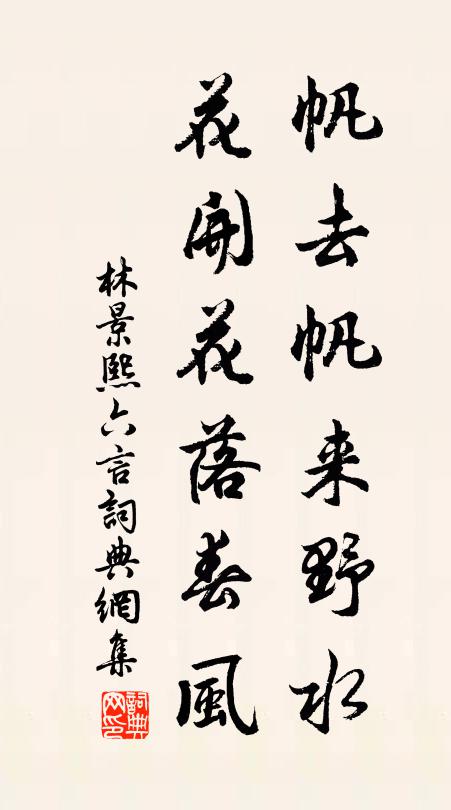 帆去帆来野水
花開花落春風
林景熙六言詞典網集
詞典网印